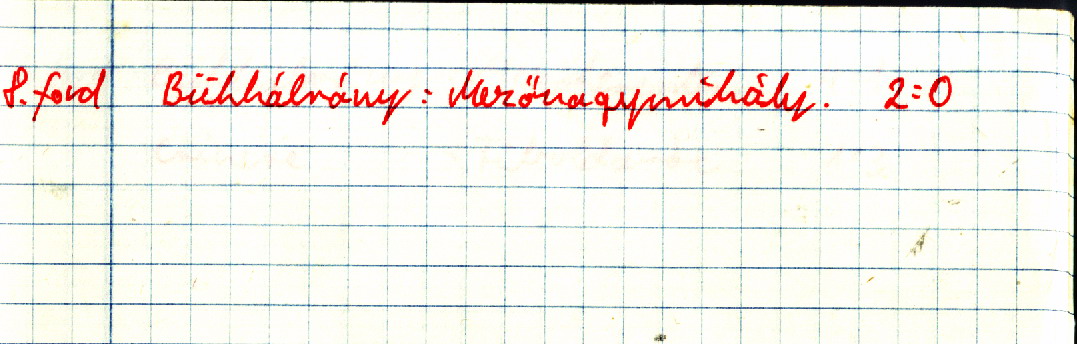 8. ford Bükkhálvány: Mezőnagymihály. 2:0